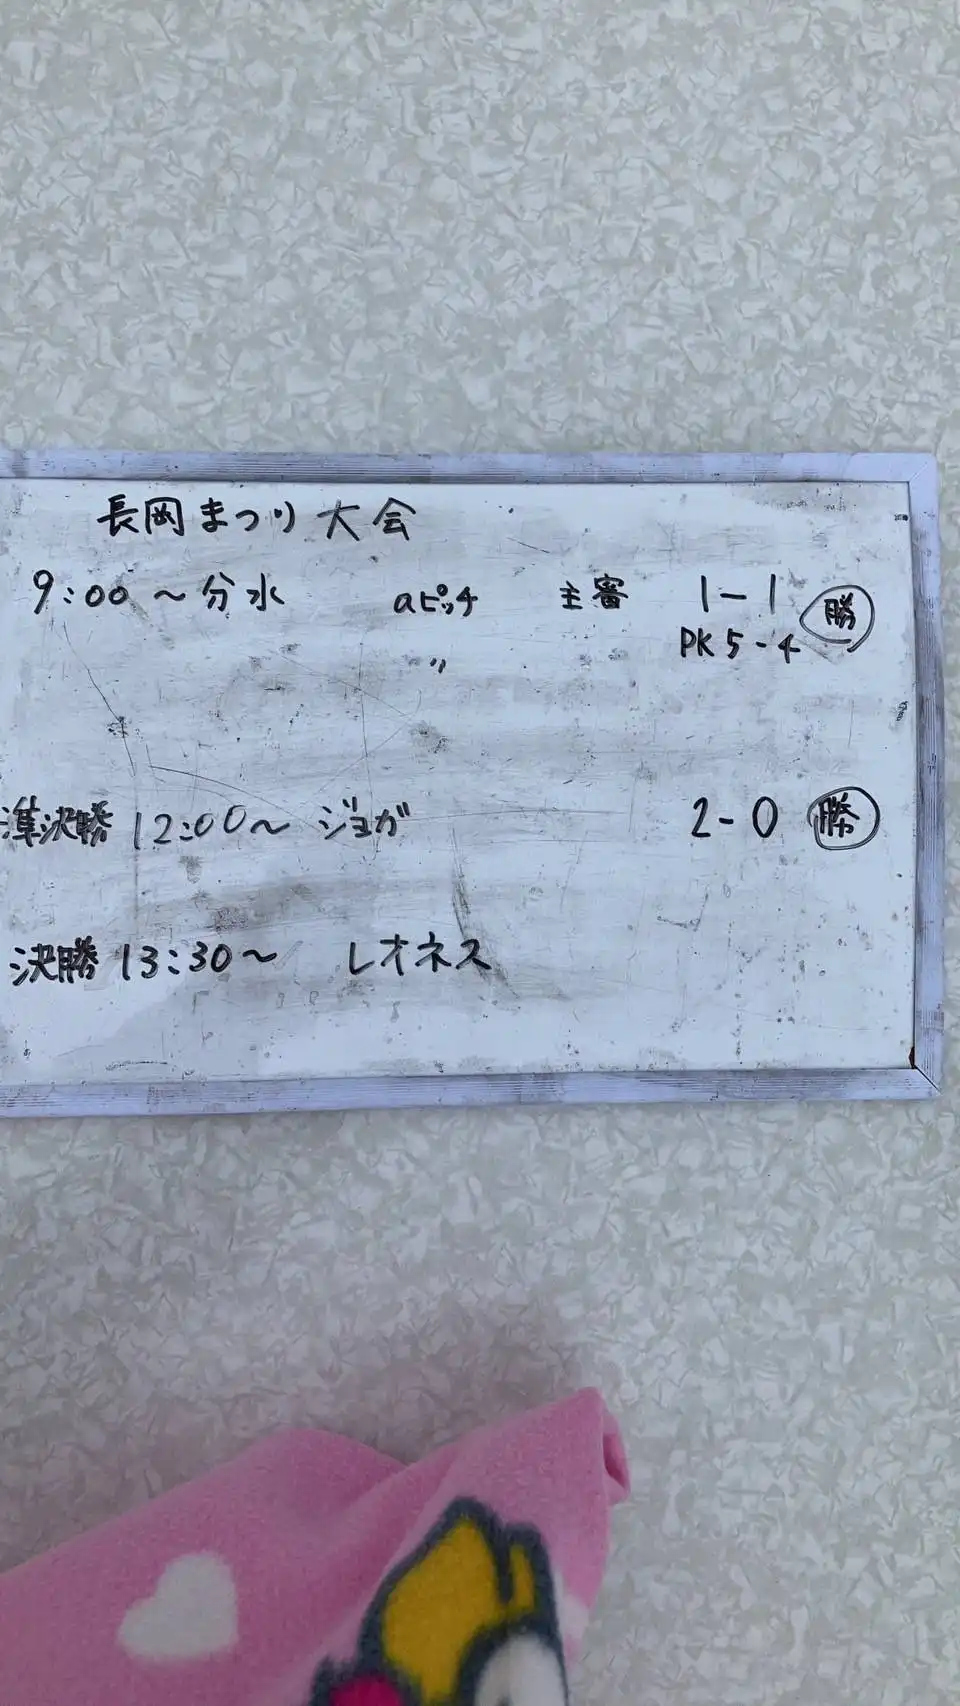 長岡まつり大会
9:00 ～ 分水 aピッチ 主審 1-1 勝
PK 5-4
〃
準決勝 12:00～ ジョガ 2-0 勝
決勝 13:30～ レオネス